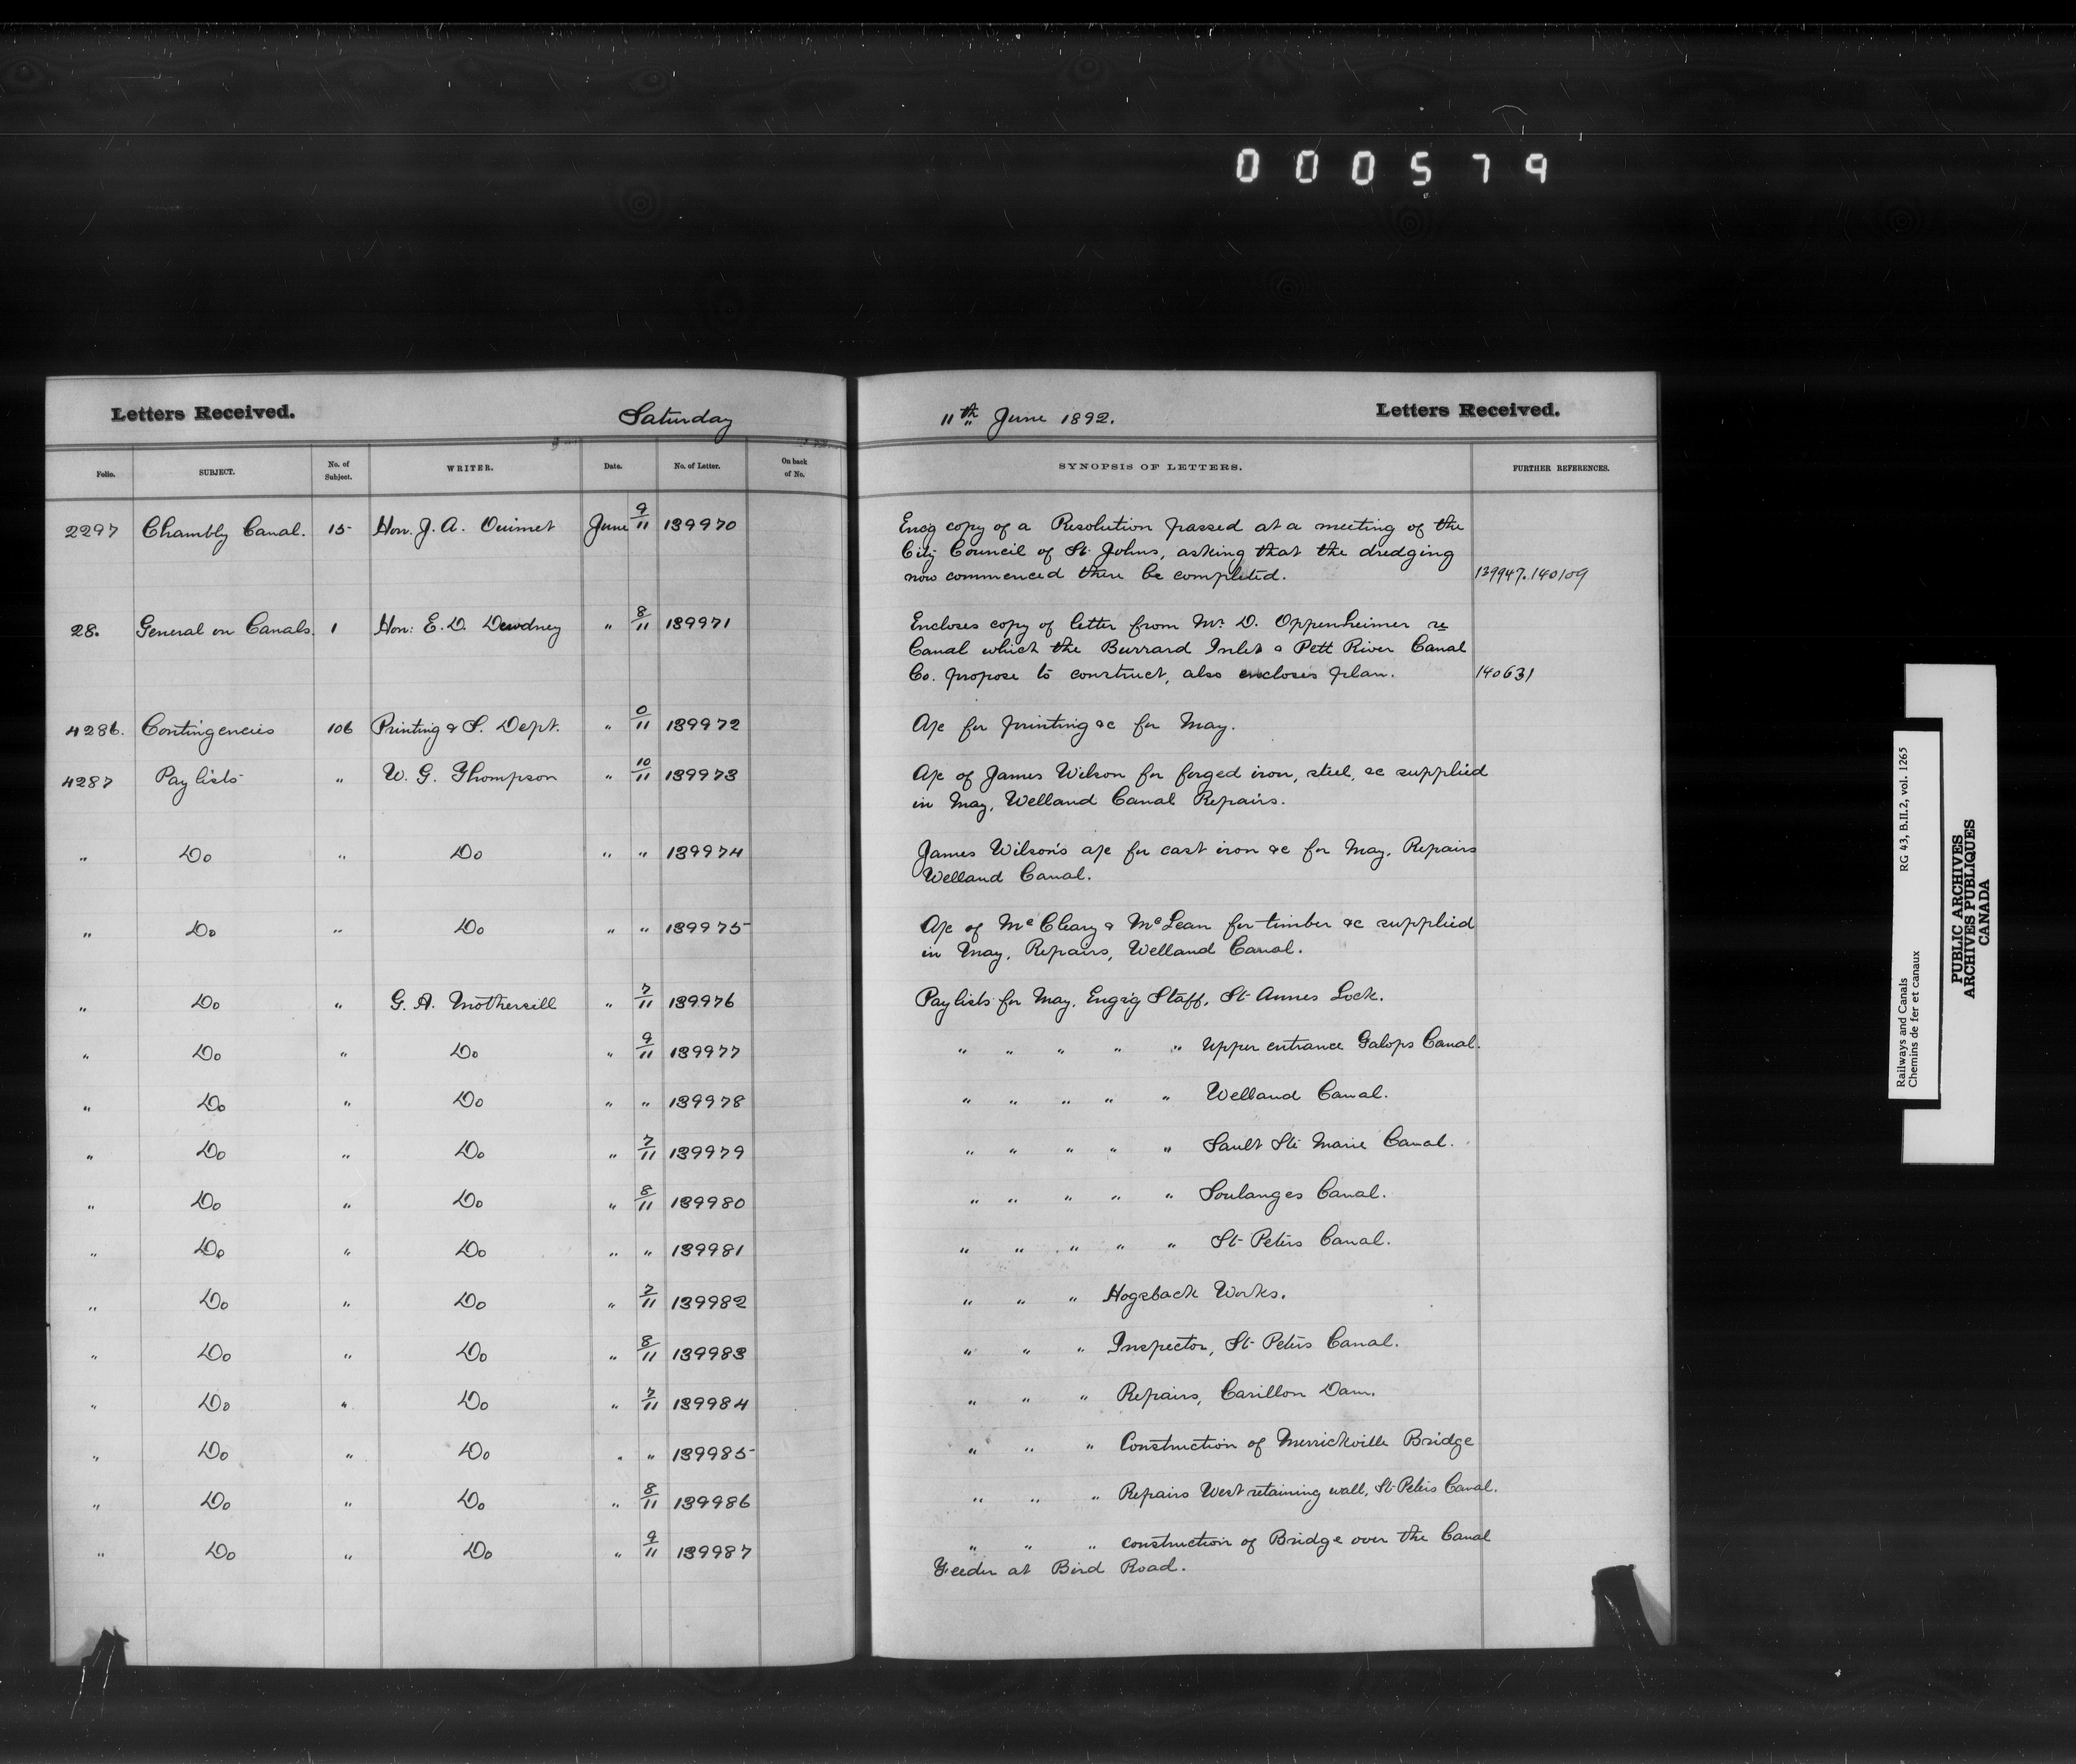 000579
Letters Received. Saturday 11th June 1892. Letters Received.
Folio. SUBJECT. No. of Subject. WRITER. Date. No. of Letter. On back of No. SYNOPSIS OF LETTERS. FURTHER REFERENCES.
2297 Chambly Canal. 15 Hon. J. A. Ouimet June 9/11 139970 Encg copy of a Resolution passed at a meeting of the
City Council of St. Johns, asking that the dredging
now commenced there be completed. 139947. 140109
28. General on Canals. 1 Hon: E. D. Dewdney " 8/11 139971 Encloses copy of letter from Mr. D. Oppenheimer re
Canal which the Burrard Inlet & Pett River Canal
Co. propose to construct, also encloses plan. 140631
4286. Contingencies 106 Printing & S. Dept. " 0/11 139972 A/c for printing &c for May.
4287 Pay lists " W. G. Thompson " 10/11 139973 A/c of James Wilson for forged iron, steel, &c supplied
in May, Welland Canal Repairs.
" Do " Do " " 139974 James Wilson's a/c for cast iron &c for May. Repairs
Welland Canal.
" Do " Do " " 139975 A/c of McCleary & McLean for timber &c supplied
in May, Repairs, Welland Canal.
" Do " G. A. Mothersill " 7/11 139976 Pay lists for May. Eng'g Staff, St. Annes Lock.
" Do " Do " 9/11 139977 " " " " " Upper entrance Galops Canal.
" Do " Do " " 139978 " " " " " Welland Canal.
" Do " Do " 7/11 139979 " " " " " Sault Ste Marie Canal.
" Do " Do " 8/11 139980 " " " " " Soulanges Canal.
" Do " Do " " 139981 " " " " " St. Peters Canal.
" Do " Do " 7/11 139982 " " " Hogsback Works.
" Do " Do " 8/11 139983 " " " Inspector, St. Peters Canal.
" Do " Do " 7/11 139984 " " " Repairs, Carillon Dam.
" Do " Do " " 139985 " " " Construction of Merrickville Bridge
" Do " Do " 8/11 139986 " " " Repairs West retaining wall, St. Peters Canal.
" Do " Do " 9/11 139987 " " " construction of Bridge over the Canal
Feeder at Bird Road.
Railways and Canals RG 43, B.II.2, vol. 1265
Chemins de fer et canaux
PUBLIC ARCHIVES
ARCHIVES PUBLIQUES
CANADA